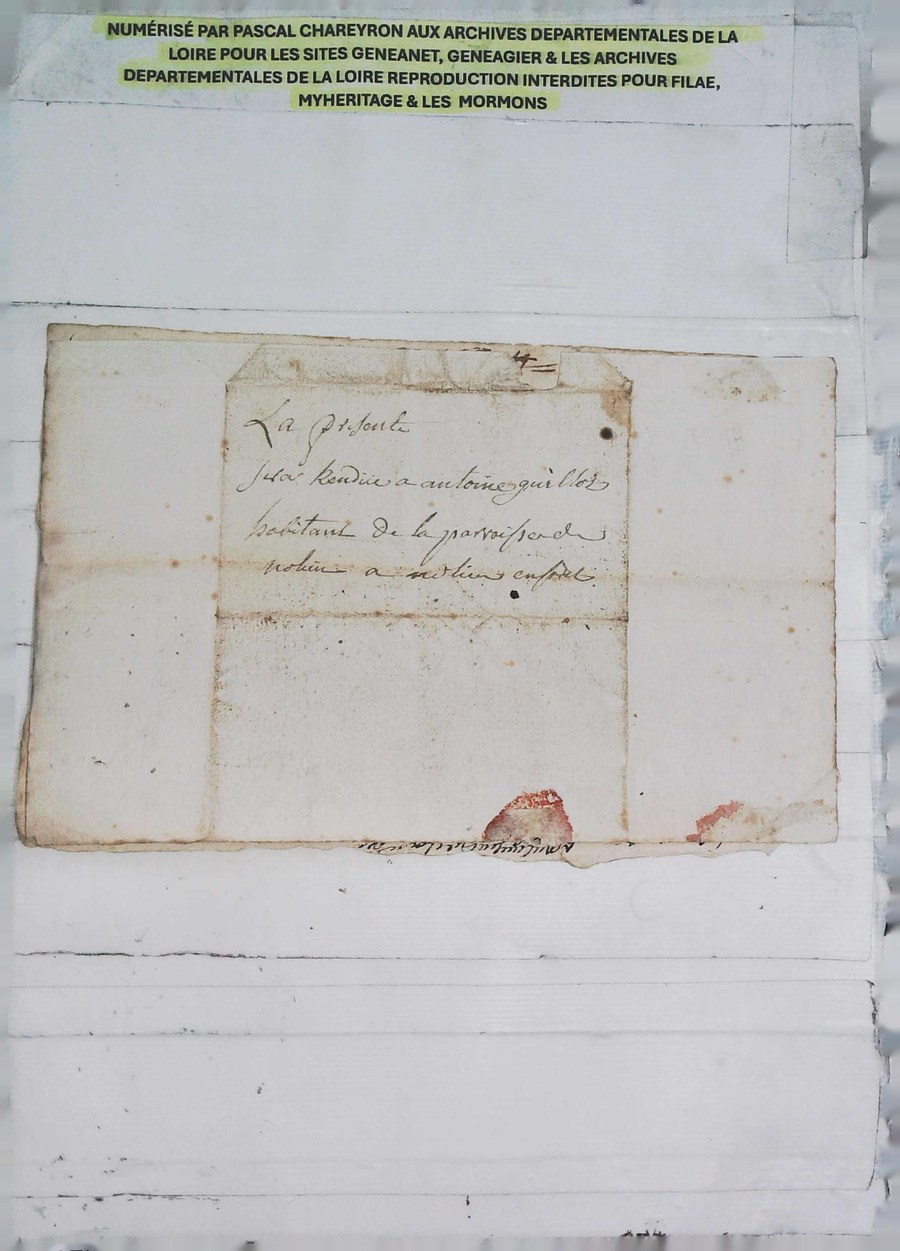 NUMÉRISÉ PAR PASCAL CHAREYRON AUX ARCHIVES DEPARTEMENTALES DE LA
LOIRE POUR LES SITES GENEANET, GENEAGIER & LES ARCHIVES
DEPARTEMENTALES DE LA LOIRE REPRODUCTION INTERDITES POUR FILAE,
MYHERITAGE & LES MORMONS
La présente
sera Rendue a antoine
habitant de la parroisse de
a